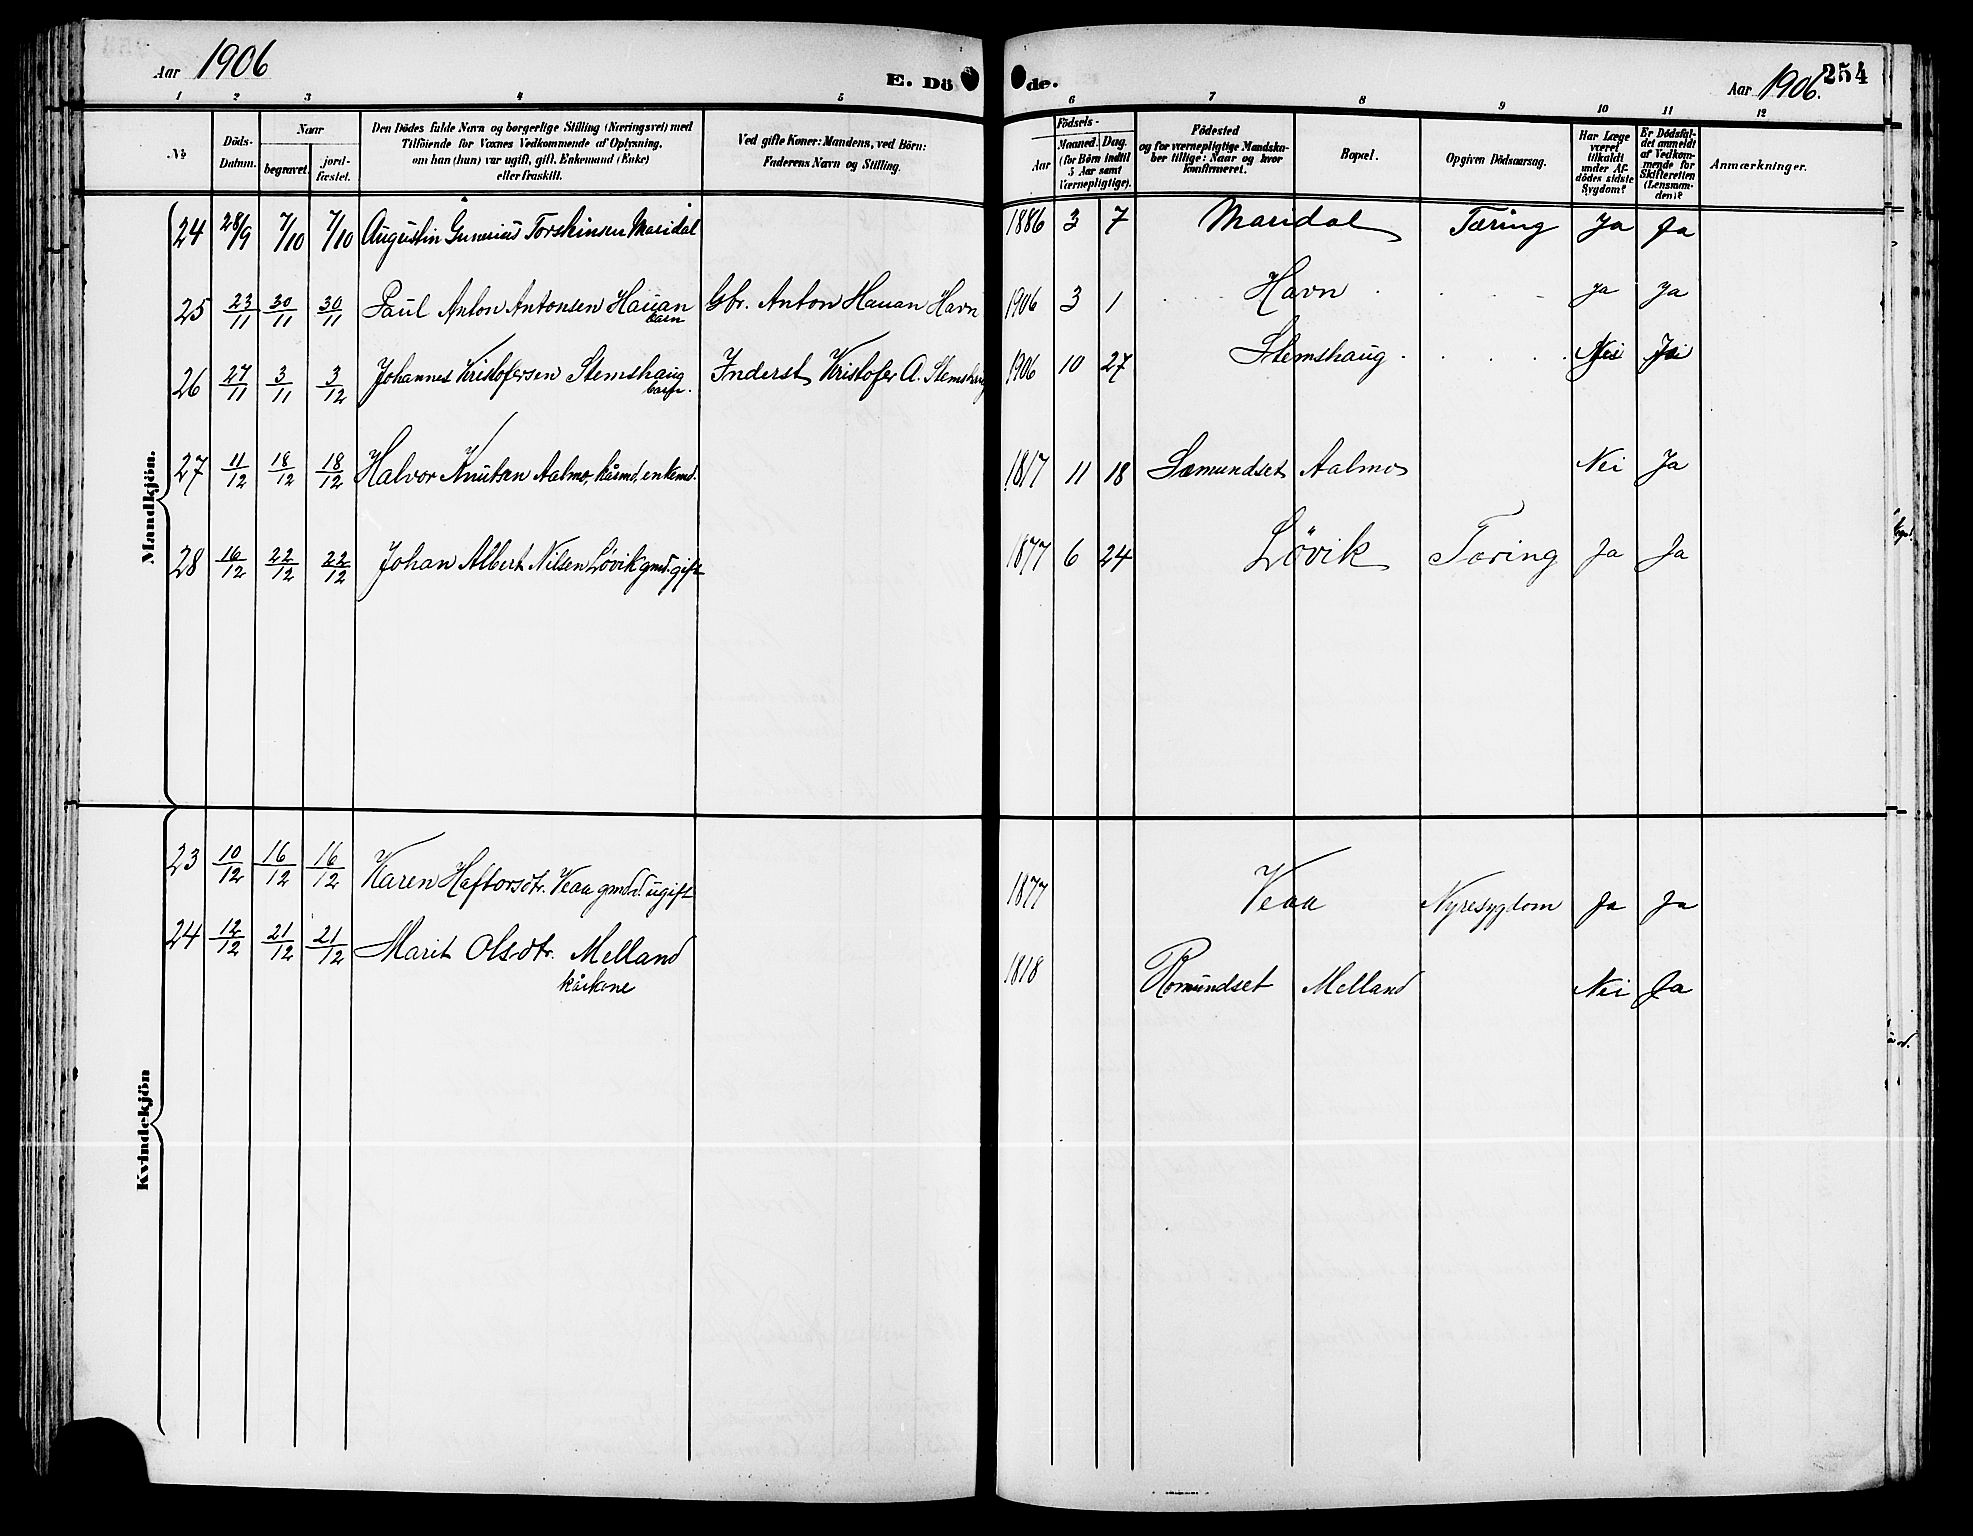 Aar 1906
E. Döde.
Aar 1906.
254
1 2 3 4 5 6 7 8 9 10 11 12
No
Döds-
Datum.
Naar
begravet
jord-
fæstet.
Den Dödes fulde Navn og borgerlige Stilling (Næringsvei) med
Tilföiende for Voxnes Vedkommende af Oplysning,
om han (hun) var ugift, gift, Enkemand (Enke)
eller fraskilt.
Ved gifte Koner: Mandens, ved Börn:
Faderens Navn og Stilling.
Födsels-
Aar
Maaned. Dag.
(for Börn indtil
5 Aar samt
Værnepligtige).
Födested
og for værnepligtige Mandska-
ber tillige: Naar og hvor
konfirmeret.
Bopæl.
Opgiven Dödsaarsag.
Har Læge
været
tilkaldt
under Af-
dödes sidste
Sygdom?
Er Dödsfal-
det anmeldt
af Vedkom-
mende for
Skifteretten
(Lensman-
den)?
Anmærkninger.
Mandkjön.
24 28/9 7/10 7/10 Augustin Gunerius Torstinsen Maridal 1886 3 7 Maridal Tæring Ja Ja
25 23/11 30/11 30/11 Paul Anton Antonsen Hauan Gbr. Anton Hauan Havn 1906 3 1 Havn Ja Ja
barn
26 27/11 3/11 3/12 Johannes Kristofersen Stemshaug Inderst Kristofer A. Stemshaug 1906 10 27 Stemshaug Nei Ja
barn.
27 11/12 18/12 18/12 Halvor Knutsen Aalmo, kårmd, enkemd. 1817 11 18 Sæmundset Aalmo Nei Ja
28 16/12 22/12 22/12 Johan Albert Nilsen Løvik gmd. gift 1877 6 24 Løvik Tæring Ja Ja
Kvindekjön
23 10/12 16/12 16/12 Karen Haftorsdtr. Veaa gmdd. ugift 1877 Veaa Nyresygdom Ja Ja
24 12/12 21/12 21/12 Marit Olsdtr. Melland 1818 Romundset Melland Nei Ja
kårkone